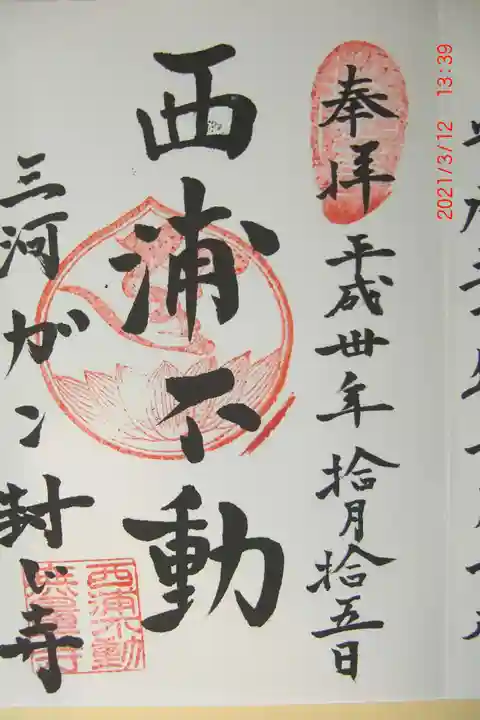 奉拝
平成丗年拾月拾五日
西浦不動
三河ガン封じ寺
西浦不動
無量寺
2021/3/12 13:39